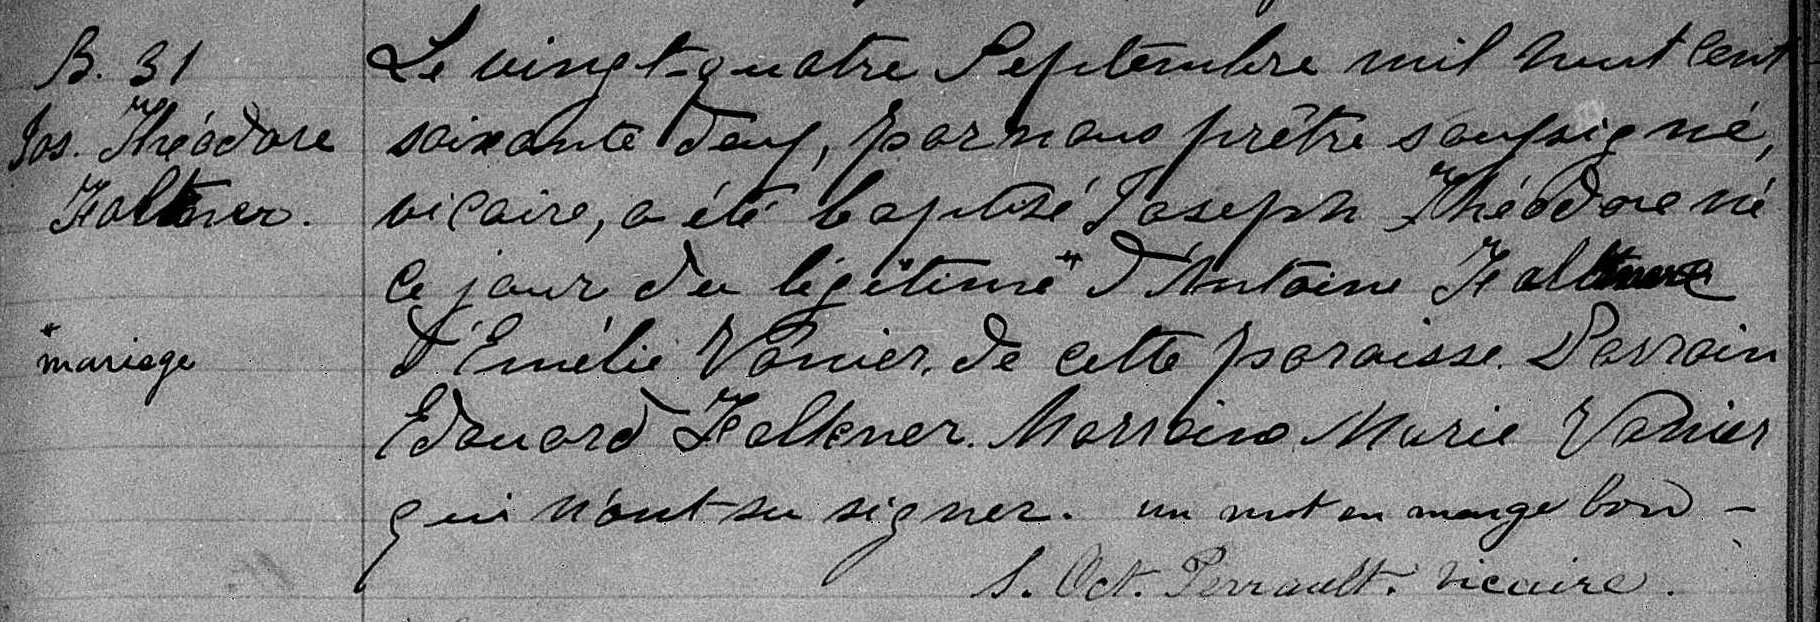 B. 31
Jos. Théodore
Falkner.
Le vingt-quatre Septembre mil huit cent
soixante deux, par nous prêtre soussigné,
vicaire, a été baptisé Joseph Théodore né
ce jour du légitime * d'Antoine Falkner
* mariage
d'Emélie Vanier, de cette paroisse. Parrain
Edouard Falkner. Marraine Marie Vanier
qui n'ont su signer. un mot en marge bon -
S. Oct. Perrault. vicaire.